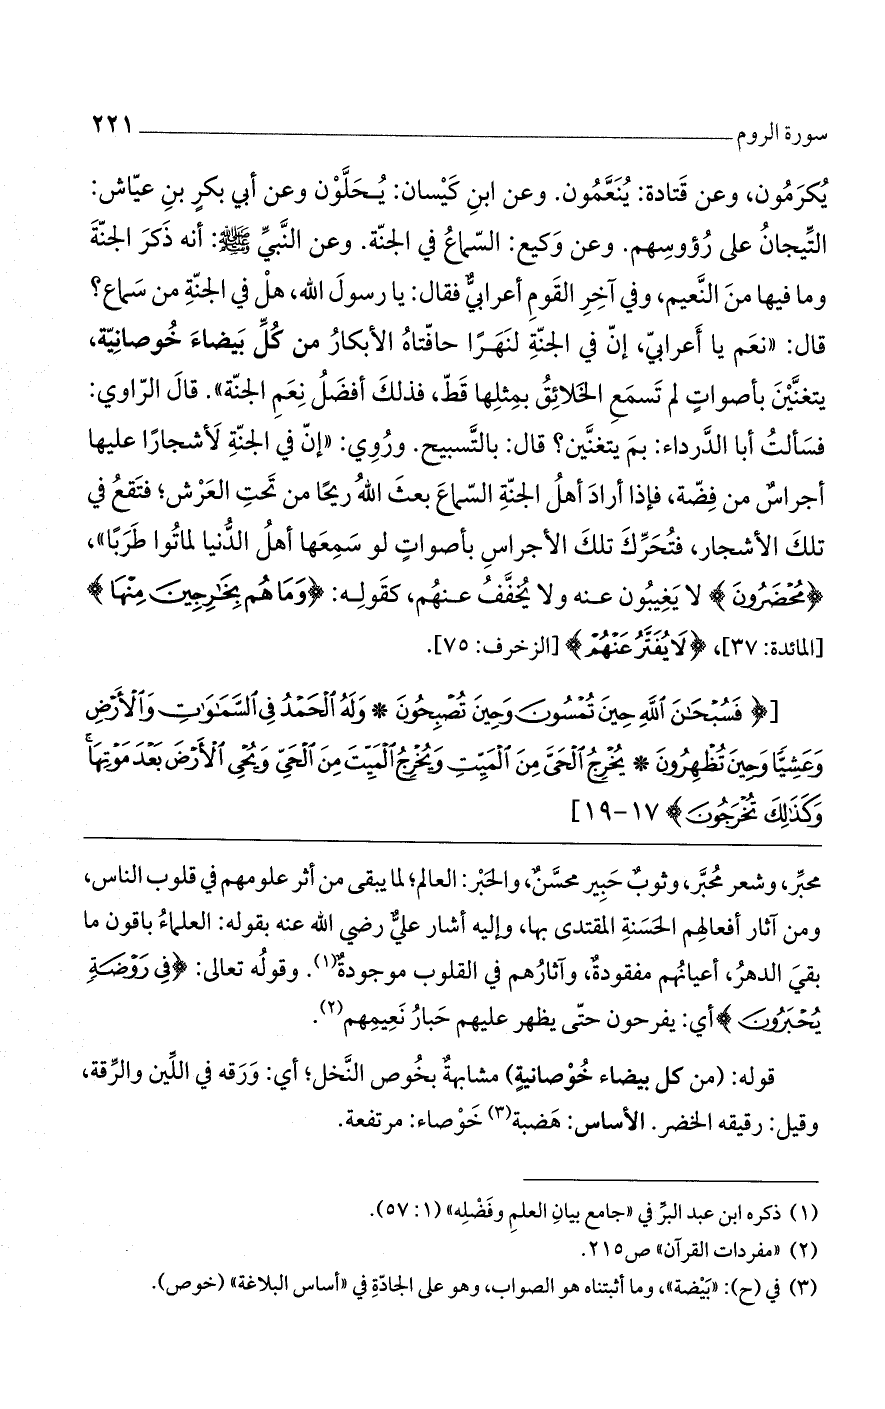 سورة الروم ٢٢١
يُكرَمُون، وعن قَتادة: يُنَعَّمُون. وعن ابنِ كَيْسان: يُحَلَّوْن وعن أبي بكرٍ بنِ عيّاش:
التِّيجانُ على رُؤوسِهم. وعن وَكيع: السّماعُ في الجنّة. وعن النَّبيِّ ﷺ: أنه ذَكَرَ الجنّةَ
وما فيها منَ النَّعيم، وفي آخِرِ القَومِ أعرابيٌّ فقال: يا رسولَ الله، هلْ في الجنّةِ من سَماع؟
قال: «نعَم يا أَعرابيّ، إنّ في الجنّةِ لنَهَرًا حافّتاهُ الأبكارُ من كُلِّ بَيضاءَ خُوصانِيّة،
يتغنَّيْنَ بأصواتٍ لم تَسمَعِ الخَلائقُ بمِثلِها قَطّ، فذلكَ أفضَلُ نِعَمِ الجنّة». قالَ الرّاوي:
فسَألتُ أبا الدَّرداء: بمَ يتغنَّين؟ قال: بالتَّسبيح. ورُوِي: «إنّ في الجنّةِ لَأشجارًا عليها
أجراسٌ من فِضّة، فإذا أرادَ أهلُ الجنّةِ السّماعَ بعثَ اللهُ ريحًا من تَحتِ العَرْش؛ فتَقعُ في
تلكَ الأشجار، فتُحَرِّكَ تلكَ الأجراسِ بأصواتٍ لو سَمِعَها أهلُ الدُّنيا لماتُوا طَرَبًا»،
﴿مُحْضَرُونَ﴾ لا يَغِيبُون عنه ولا يُخفَّفُ عنهُم، كقَولِه: ﴿وَمَا هُم بِخَٰرِجِينَ مِنْهَا﴾
[المائدة: ٣٧]، ﴿لَا يُفَتَّرُ عَنْهُمْ﴾ [الزخرف: ٧٥].
[﴿فَسُبْحَٰنَ ٱللَّهِ حِينَ تُمْسُونَ وَحِينَ تُصْبِحُونَ * وَلَهُ ٱلْحَمْدُ فِى ٱلسَّمَٰوَٰتِ وَٱلْأَرْضِ
وَعَشِيًّا وَحِينَ تُظْهِرُونَ * يُخْرِجُ ٱلْحَىَّ مِنَ ٱلْمَيِّتِ وَيُخْرِجُ ٱلْمَيِّتَ مِنَ ٱلْحَىِّ وَيُحْىِ ٱلْأَرْضَ بَعْدَ مَوْتِهَا ۚ
وَكَذَٰلِكَ تُخْرَجُونَ﴾ ١٧-١٩]
محبِّر، وشعر مُحبَّر، وثوبٌ حَبِير محسَّنٌ، والحَبْر: العالم؛ لما يبقى من أثر علومهم في قلوب الناس،
ومن آثار أفعالهِم الحَسَنةِ المقتدى بها، وإليه أشار عليٌّ رضي الله عنه بقوله: العلماءُ باقون ما
بقيَ الدهرُ، أعيانُهم مفقودةٌ، وآثارُهم في القلوب موجودةٌ(١). وقولُه تعالى: ﴿فِى رَوْضَةٍ
يُحْبَرُونَ﴾ أي: يفرحون حتّى يظهر عليهم حَبارُ نَعِيمِهم(٢).
قوله: (من كل بيضاء خُوْصانيةٍ) مشابهةٌ بخُوص النَّخل؛ أي: وَرَقه في اللِّين والرِّقة،
وقيل: رقيقه الخضر. الأساس: هَضبة(٣) خَوْصاء: مرتفعة.
(١) ذكره ابن عبد البرِّ في «جامع بيانِ العلمِ وفَضْلِه» (١: ٥٧).
(٢) «مفردات القرآن» ص٢١٥.
(٣) في (ح): «بَيْضة»، وما أثبتناه هو الصواب، وهو على الجادّةِ في «أساس البلاغة» (خوص).